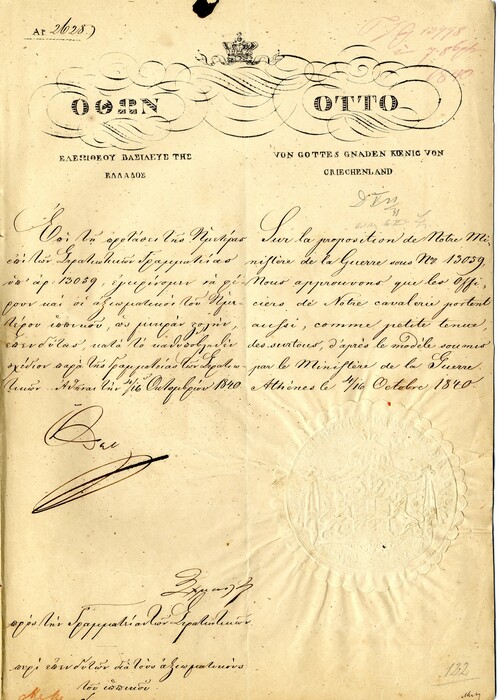 Αρ. 2628.
ΟΘΩΝ
ΕΛΕΩι ΘΕΟΥ ΒΑΣΙΛΕΥΣ ΤΗΣ
ΕΛΛΑΔΟΣ
OTTO
VON GOTTES GNADEN KŒNIG VON
GRIECHENLAND
Επί τη προτάσει της Ημετέρας
επί των Στρατιωτικών Γραμματείας
υπ' αρ. 13059, εγκρίνομεν να φέ-
ρουν και οι αξιωματικοί του Ημε-
τέρου ιππικού, ως μικράν στολήν,
επενδύτας, κατά το καθυποβληθέν
σχέδιον παρά της Γραμματείας των Στρατιω-
τικών. Αθήναι την 4/16 Οκτωβρίου 1840
Sur la proposition de Notre Mi-
nistère de la Guerre sous No. 13059.
Nous approuvons que les Offi-
ciers de Notre cavalerie portent
aussi, comme petite tenue,
des surtouts, d'après le modèle soumis
par le Ministère de la Guerre.
Athènes le 4/16 Octobre 1840
Όθων
προς την Γραμματείαν των Στρατιωτικών
περί επενδυτών δια τους αξιωματικούς
του ιππικού
132